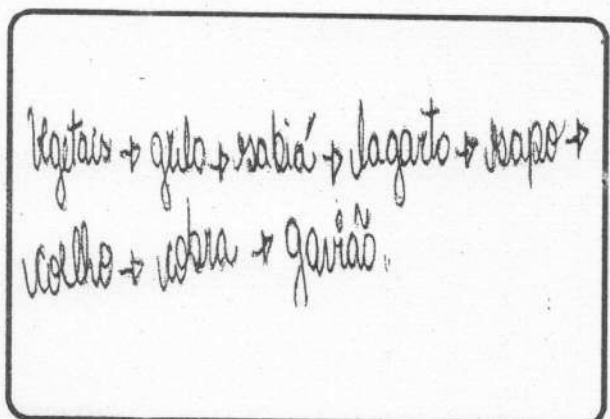 Vegetais → grilo → sabiá → lagarto → sapo →
coelho → cobra → gavião.